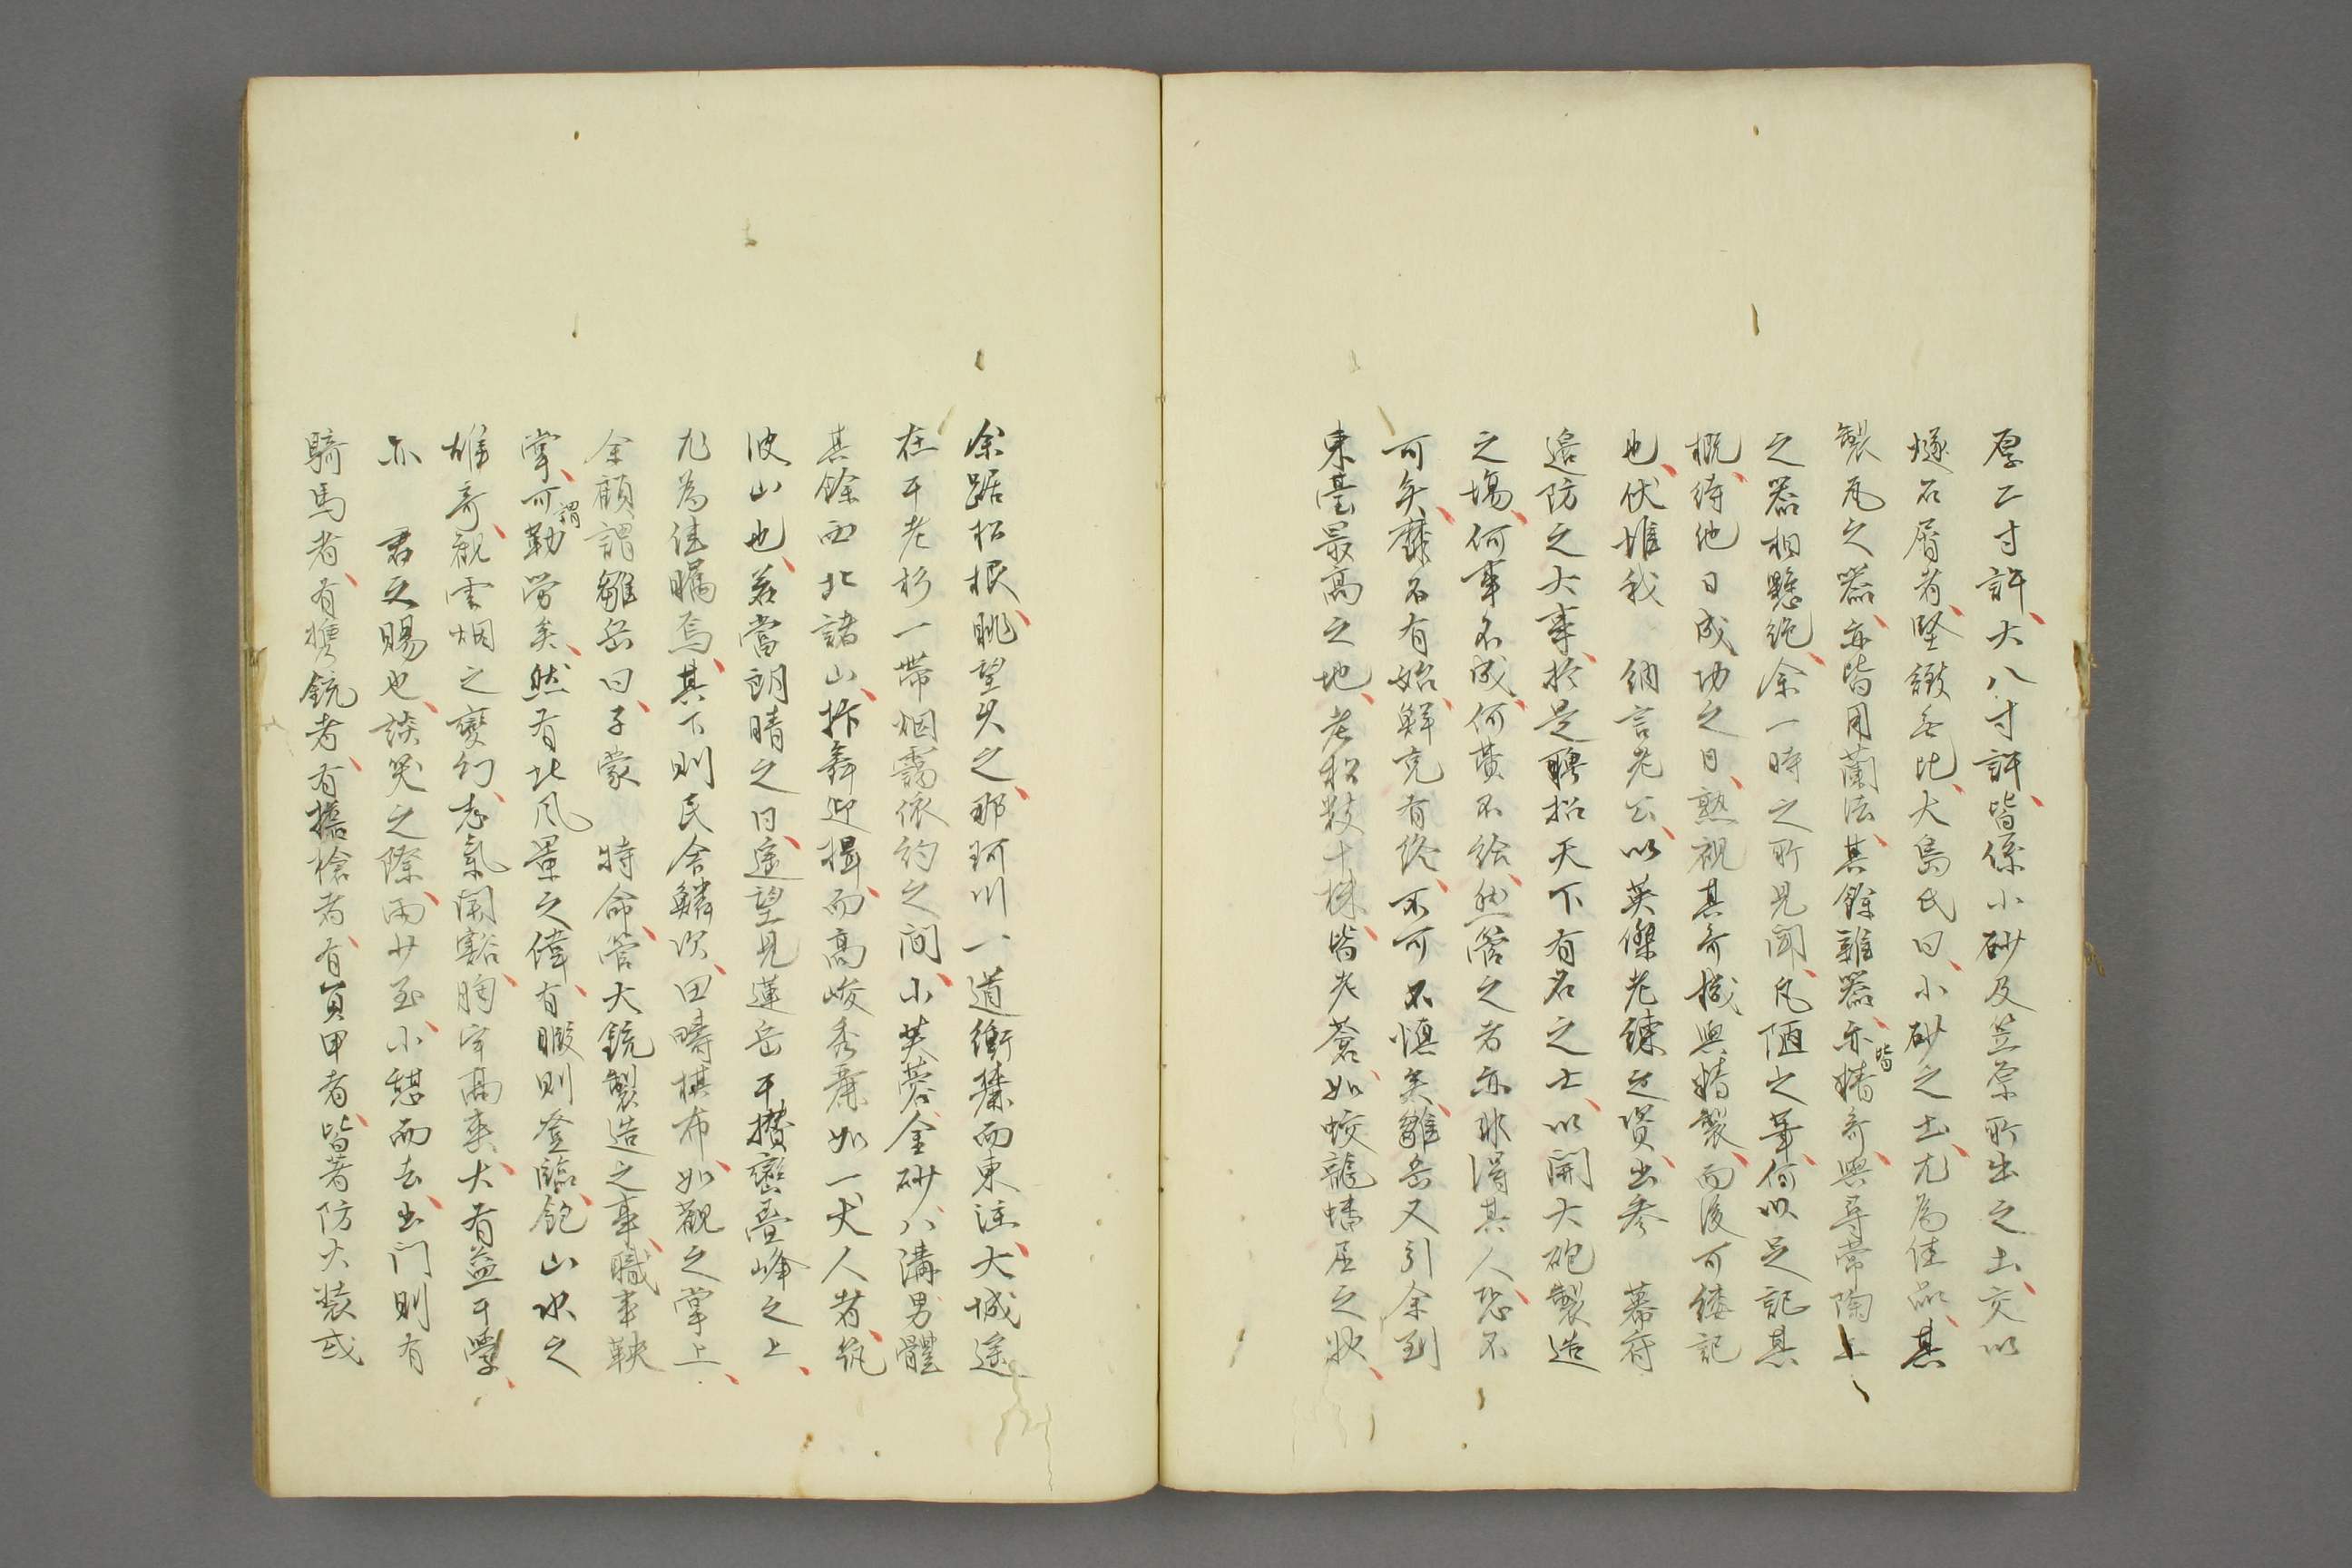 厚二寸許、大八寸許、皆係小砂及笠原所出之土、交以
燧石屑者、堅緻無比、大島氏曰、小砂之土、尤為佳品、其
製瓦之器、亦皆用蘭法、其餘雜器、亦皆精奇、與尋常陶上
之器相懸絶、余一時之所見聞、凡陋之筆、何以足記其
概、待他日成功之日、熟視其奇機與精製、而後可縷記
也、伏惟我　納言老公、以英傑老練之資、出參　幕府
邊防之大事、於是聘招天下有名之士、以開大砲製造
之場、何事不成、何費不給、然管之者亦非得其人、恐不
可矣、靡不有始、鮮克有終、不可不慎矣、雛岳又引余到
東臺最高之地、老松數十株、皆老蒼、如蛟龍蟠屈之狀、
余踞松根、眺望久之、那珂川一道衝㯋而東注、大城逶
在于老杉一帶烟靄依約之間、小芙蓉金砂八溝男體
其餘西北諸山、拚舞迎揖、而高峻秀麗如一丈人者、筑
波山也、若當朗晴之日、遥望見蓮岳于攅巒疊峰之上、
尤為佳矚焉、其下則民舎鱗次、田疇棋布、如觀之掌上、
余顧謂雛岳曰、子蒙　特命、管大銃製造之事、職事鞅
掌、可謂勤勞矣、然有此風景之偉、有暇則登臨、飽山水之
雄奇、觀雲烟之變幻、志氣開豁、胸宇高爽、大有益于學、
亦　君之賜也、談笑之際、雨少至、小憩而去、出门則有
騎馬者、有携銃者、有搖槍者、有負甲者、皆著防火装或